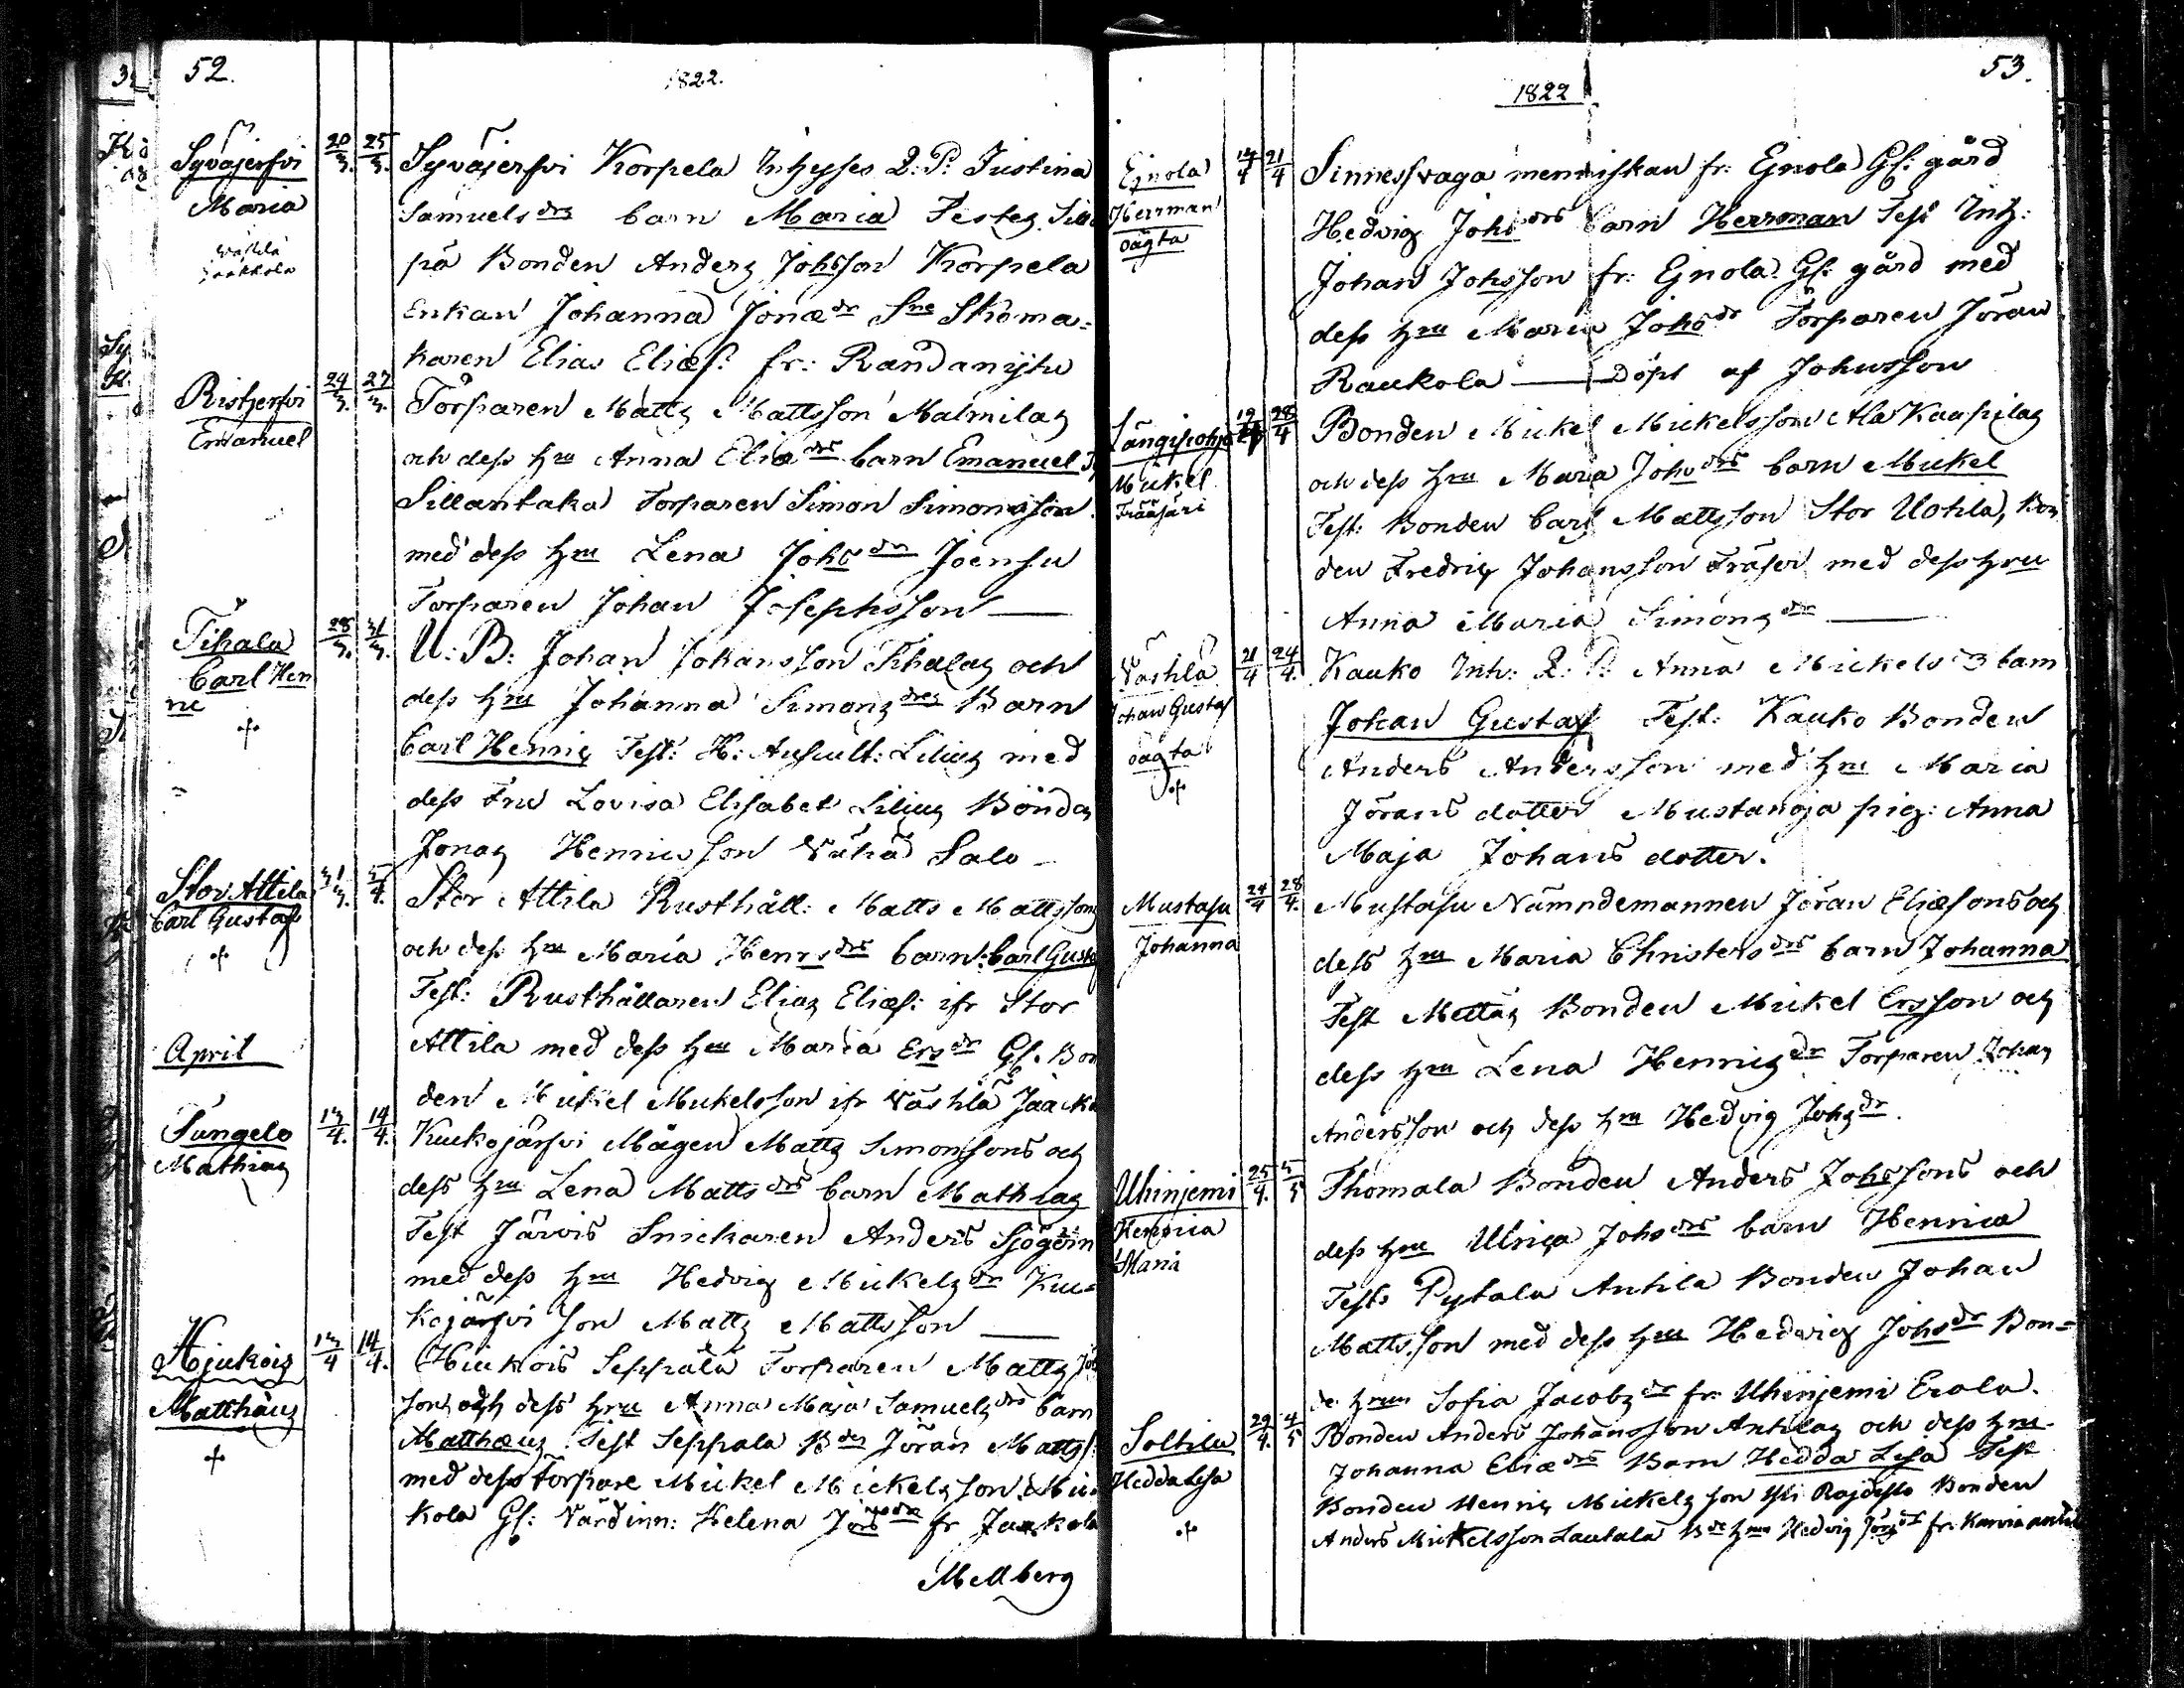 52.
1822.
Syväjerfvi
Maria
20/3. 25/3.
Syväjerfvi Korpela Inhyses Q: P: Justina
Samuels drs barn Maria Testes
på Bonden Anders Johsson Korpela
Enkan Johanna Jonæ dr Sne Skoma=
karen Elias Eliæs: fr: Randanijtu
Ristjerfvi
Emanuel
24/3. 27/3.
Torparen Matts Mattsson Malmilas
och dess hru Anna Eliæ drs barn Emanuel
Sillantaka Torparen Simon Simonsson
med dess hru Lena Johs dr Joensu
Torparen Johan Josephsson
Tihala
Carl Hen
ric
28/3. 31/3.
U: B: Johan Johansson Tihalas och
dess hru Johanna Simons drs Barn
Carl Henric Test: H: Auscult: Lilius med
dess Fru Lovisa Elisabet Lilius Bonden
Jonas Henricsson Vähä Salo
Stor Attila
Carl Gustaf
31/3. 5/4.
Stor Attila Rusthåll: Matts Mattssons
och dess hru Maria Henrs drs barn: Carl Gust
Test: Rusthållaren Elias Eliæs: ifr Stor
Attila med dess hru Maria Ers dr Gf. Bon
den Mickel Mickelsson ifr Västilä Jaacko
April
Sungelo
Mathias
13/4. 14/4.
Kuukojärfvi Mågen Matts Simonssons och
dess hru Lena Matts drs barn Mathias
Test Järvis Snickaren Anders Sjögrön
med dess hru Hedvig Mickels dr Kuu=
kojärfvi son Matts Mattsson
Hjukois
Matthæus
13/4 14/4.
Hiukois Seppälä Torparen Matts
sons och dess hru Anna Maja Samuels drs barn
Matthæus Test Seppala Bden Jöran Mattss:
med dess torpare Mickel Mickelsson
kola Gf: Värdinn: Helena Jörs dr fr Jaakola
Mellberg
53.
1822
Ejnola
Herrman
oägta
14/4 21/4
Sinnessvaga menniskan fr: Ejnola Gf: gård
Hedvig Johs drs barn Herrman Test Inh:
Johan Johsson fr: Ejnola Gf: gård med
dess hru Maria Johs dr Torparen Jöran
Raukola döpt af Johnsson
Mickel
19/4 28/4
Bonden Mickel Mickelsson Ala Kaapilas
och dess hru Maria Johs drs barn Mickel
Test: Bonden Carl Mattsson Stor Uotila, Bon
den Fredric Johansson Fräseri med dess hru
Anna Maria Simons dr
Västilä
Johan Gustaf
oägta
21/4 24/4.
Kauko Inh: Q: P: Anna Mickels barn
Johan Gustaf Test: Kauko Bonden
Anders Andersson med hru Maria
Jörans dotter Mustanoja pig: Anna
Maja Johans dotter.
Mustasu
Johanna
24/4 28/4.
Mustasu Nämndemannen Jöran Eliæsons och
dess hru Maria Christers drs barn Johanna
Test Mettäs Bonden Mickel Ersson och
dess hru Lena Henrics dr Torparen Johan
Andersson och dess hru Hedvig Johs dr.
Uhinjemi
Henrica
Maria
25/4. 5/5
Thomala Bonden Anders Johssons och
dess hru Ulrica Johs drs barn Henrica
Tests Pytala Antila Bonden Johan
Mattsson med dess hru Hedwig Johs dr Bon=
de hrun Sofia Jacobs dr fr: Uhinjemi Erola.
Soltila
Hedda Lisa
29/4. 4/5
Bonden Anders Johansson Antilas och dess hru
Johanna Eliæ drs Barn Hedda Lisa Test
Bonden Henric Mickelsson Bonden
Anders Mickelsson Lautala Bde hru Hedvig Jörs dr fr: Karvia